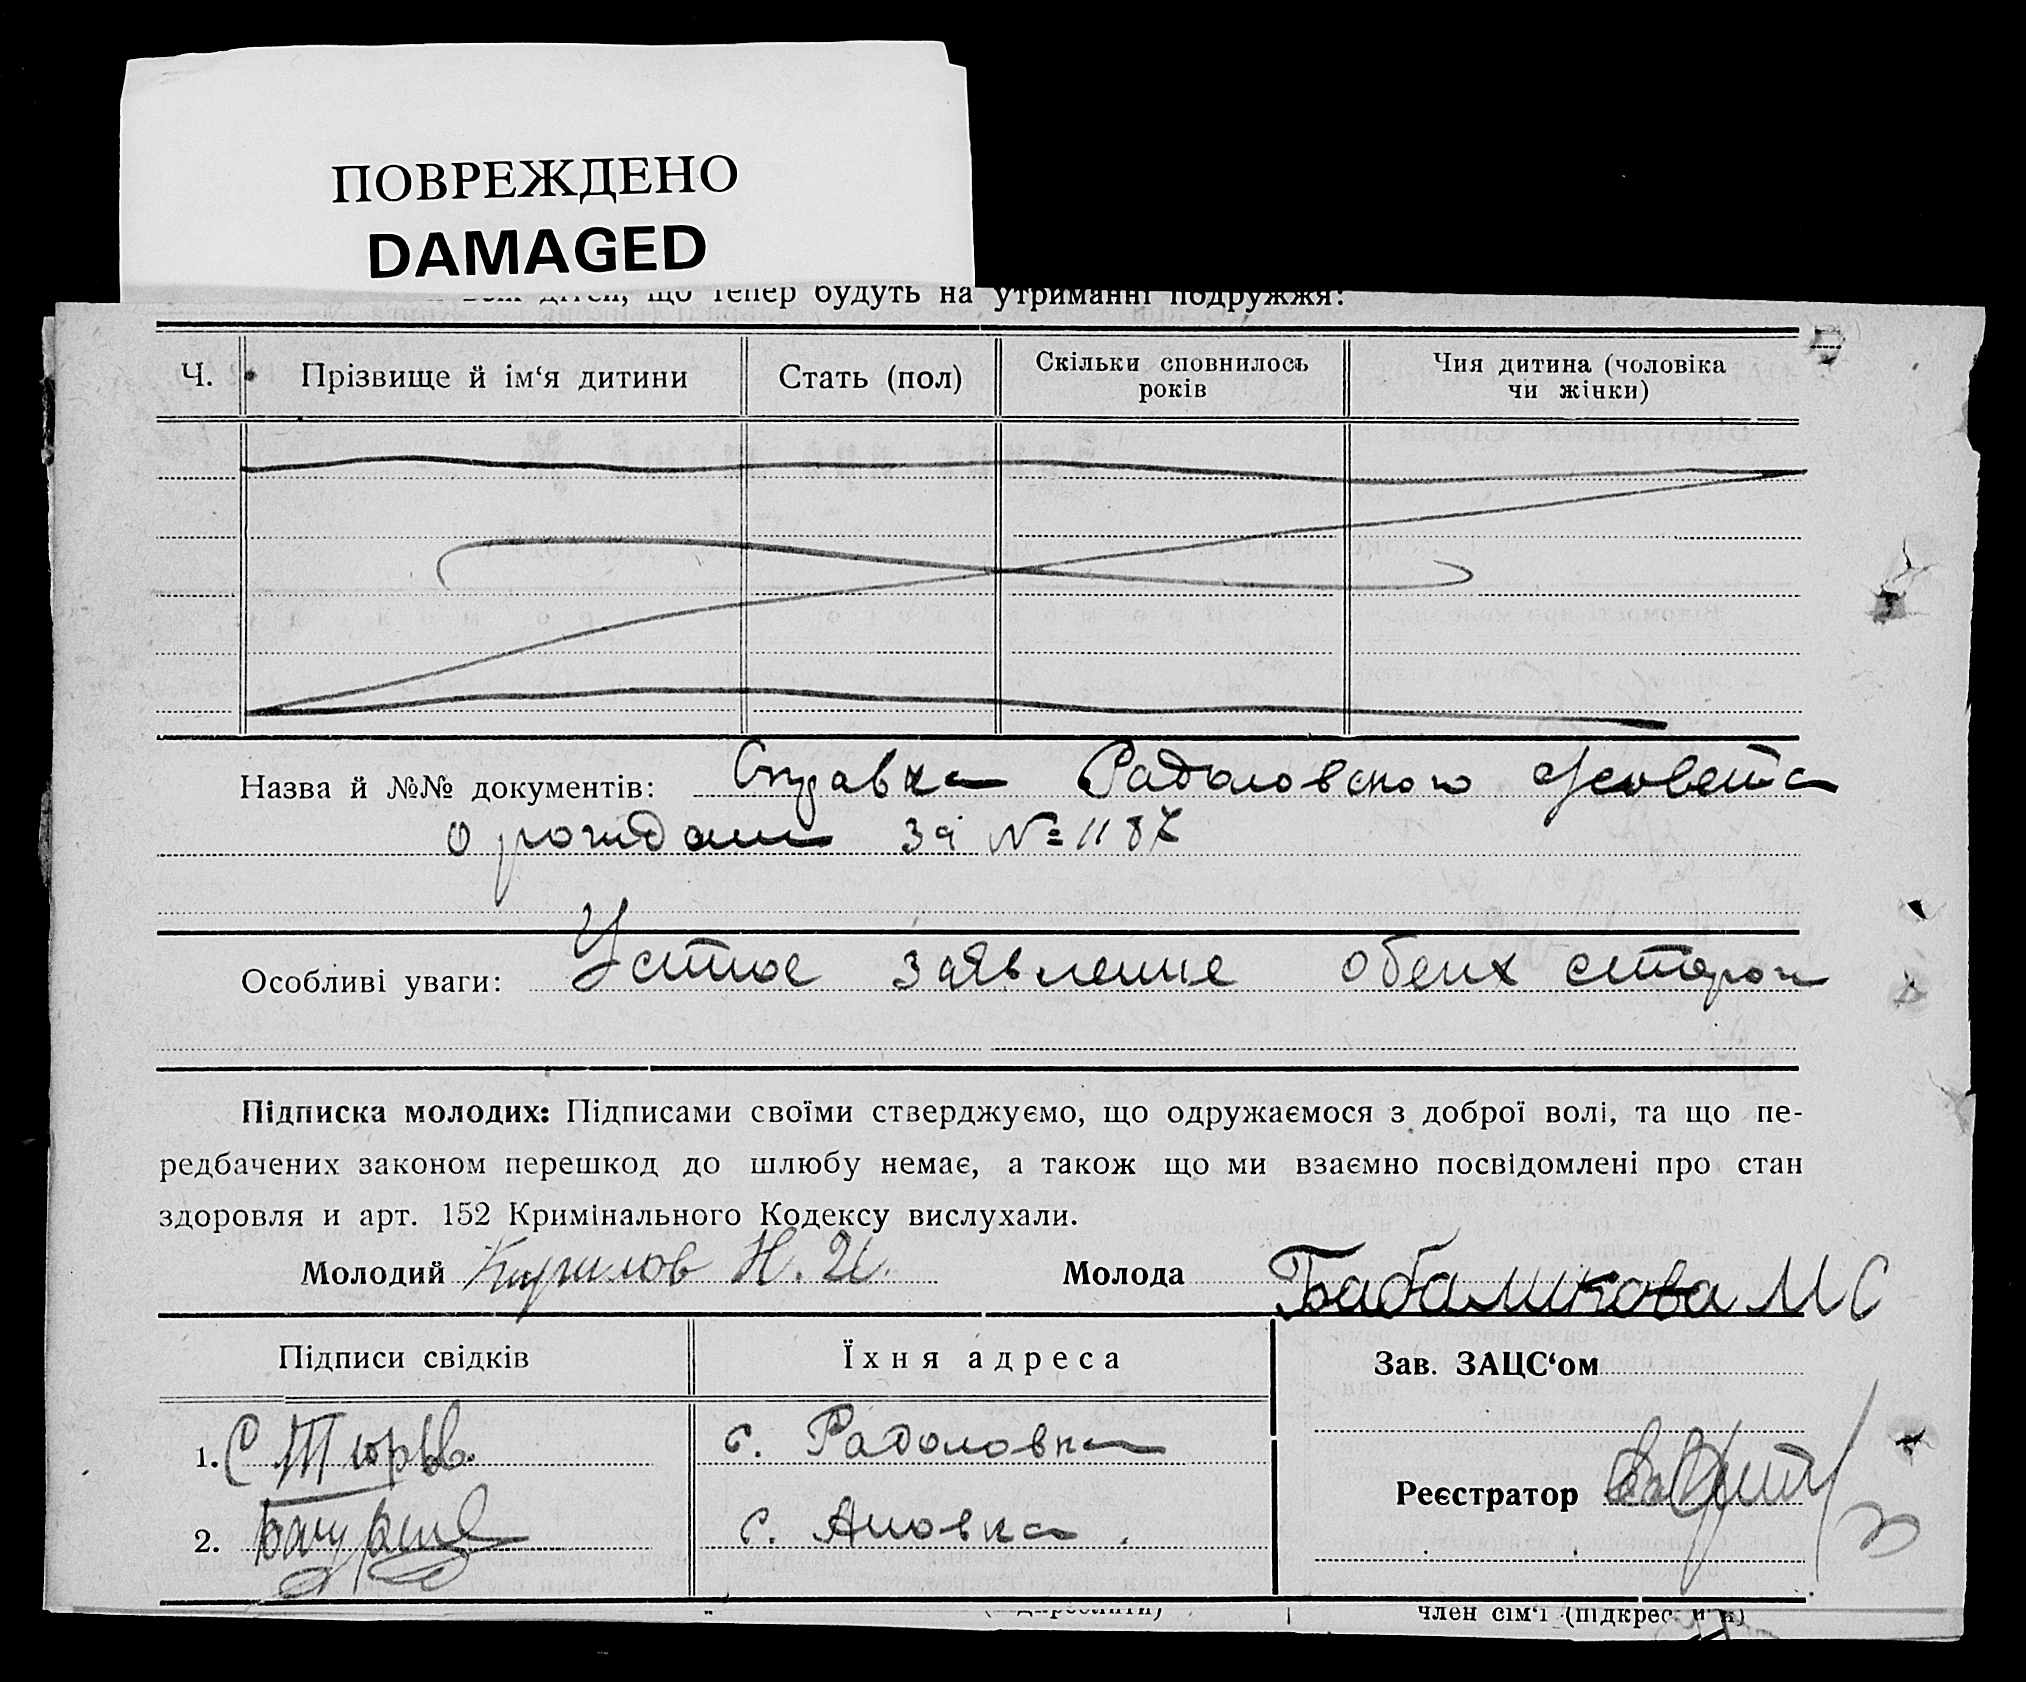 ПОВРЕЖДЕНО
DAMAGED
дітей, що тепер будуть на утриманні подружжя:
Ч. Прізвище й ім‘я дитини Стать (пол) Скільки сповнилось років Чия дитина (чоловіка чи жінки)
Назва й №№ документів: Справка Радоловского с/совета
о рождении за № 1187
Особливі уваги: Устное заявление обеих сторон
Підписка молодих: Підписами своїми стверджуємо, що одружаємося з доброї волі, та що пе-
редбачених законом перешкод до шлюбу немає, а також що ми взаємно посвідомлені про стан
здоровля и арт. 152 Кримінального Кодексу вислухали.
Молодий Курилов Н. И. Молода Бабамикова М С
Підписи свідків Їхня адреса Зав. ЗАЦС‘ом
1. С с. Радоловка
Реєстратор
2. с. Ановка.
член сім‘ї (підкреслити)